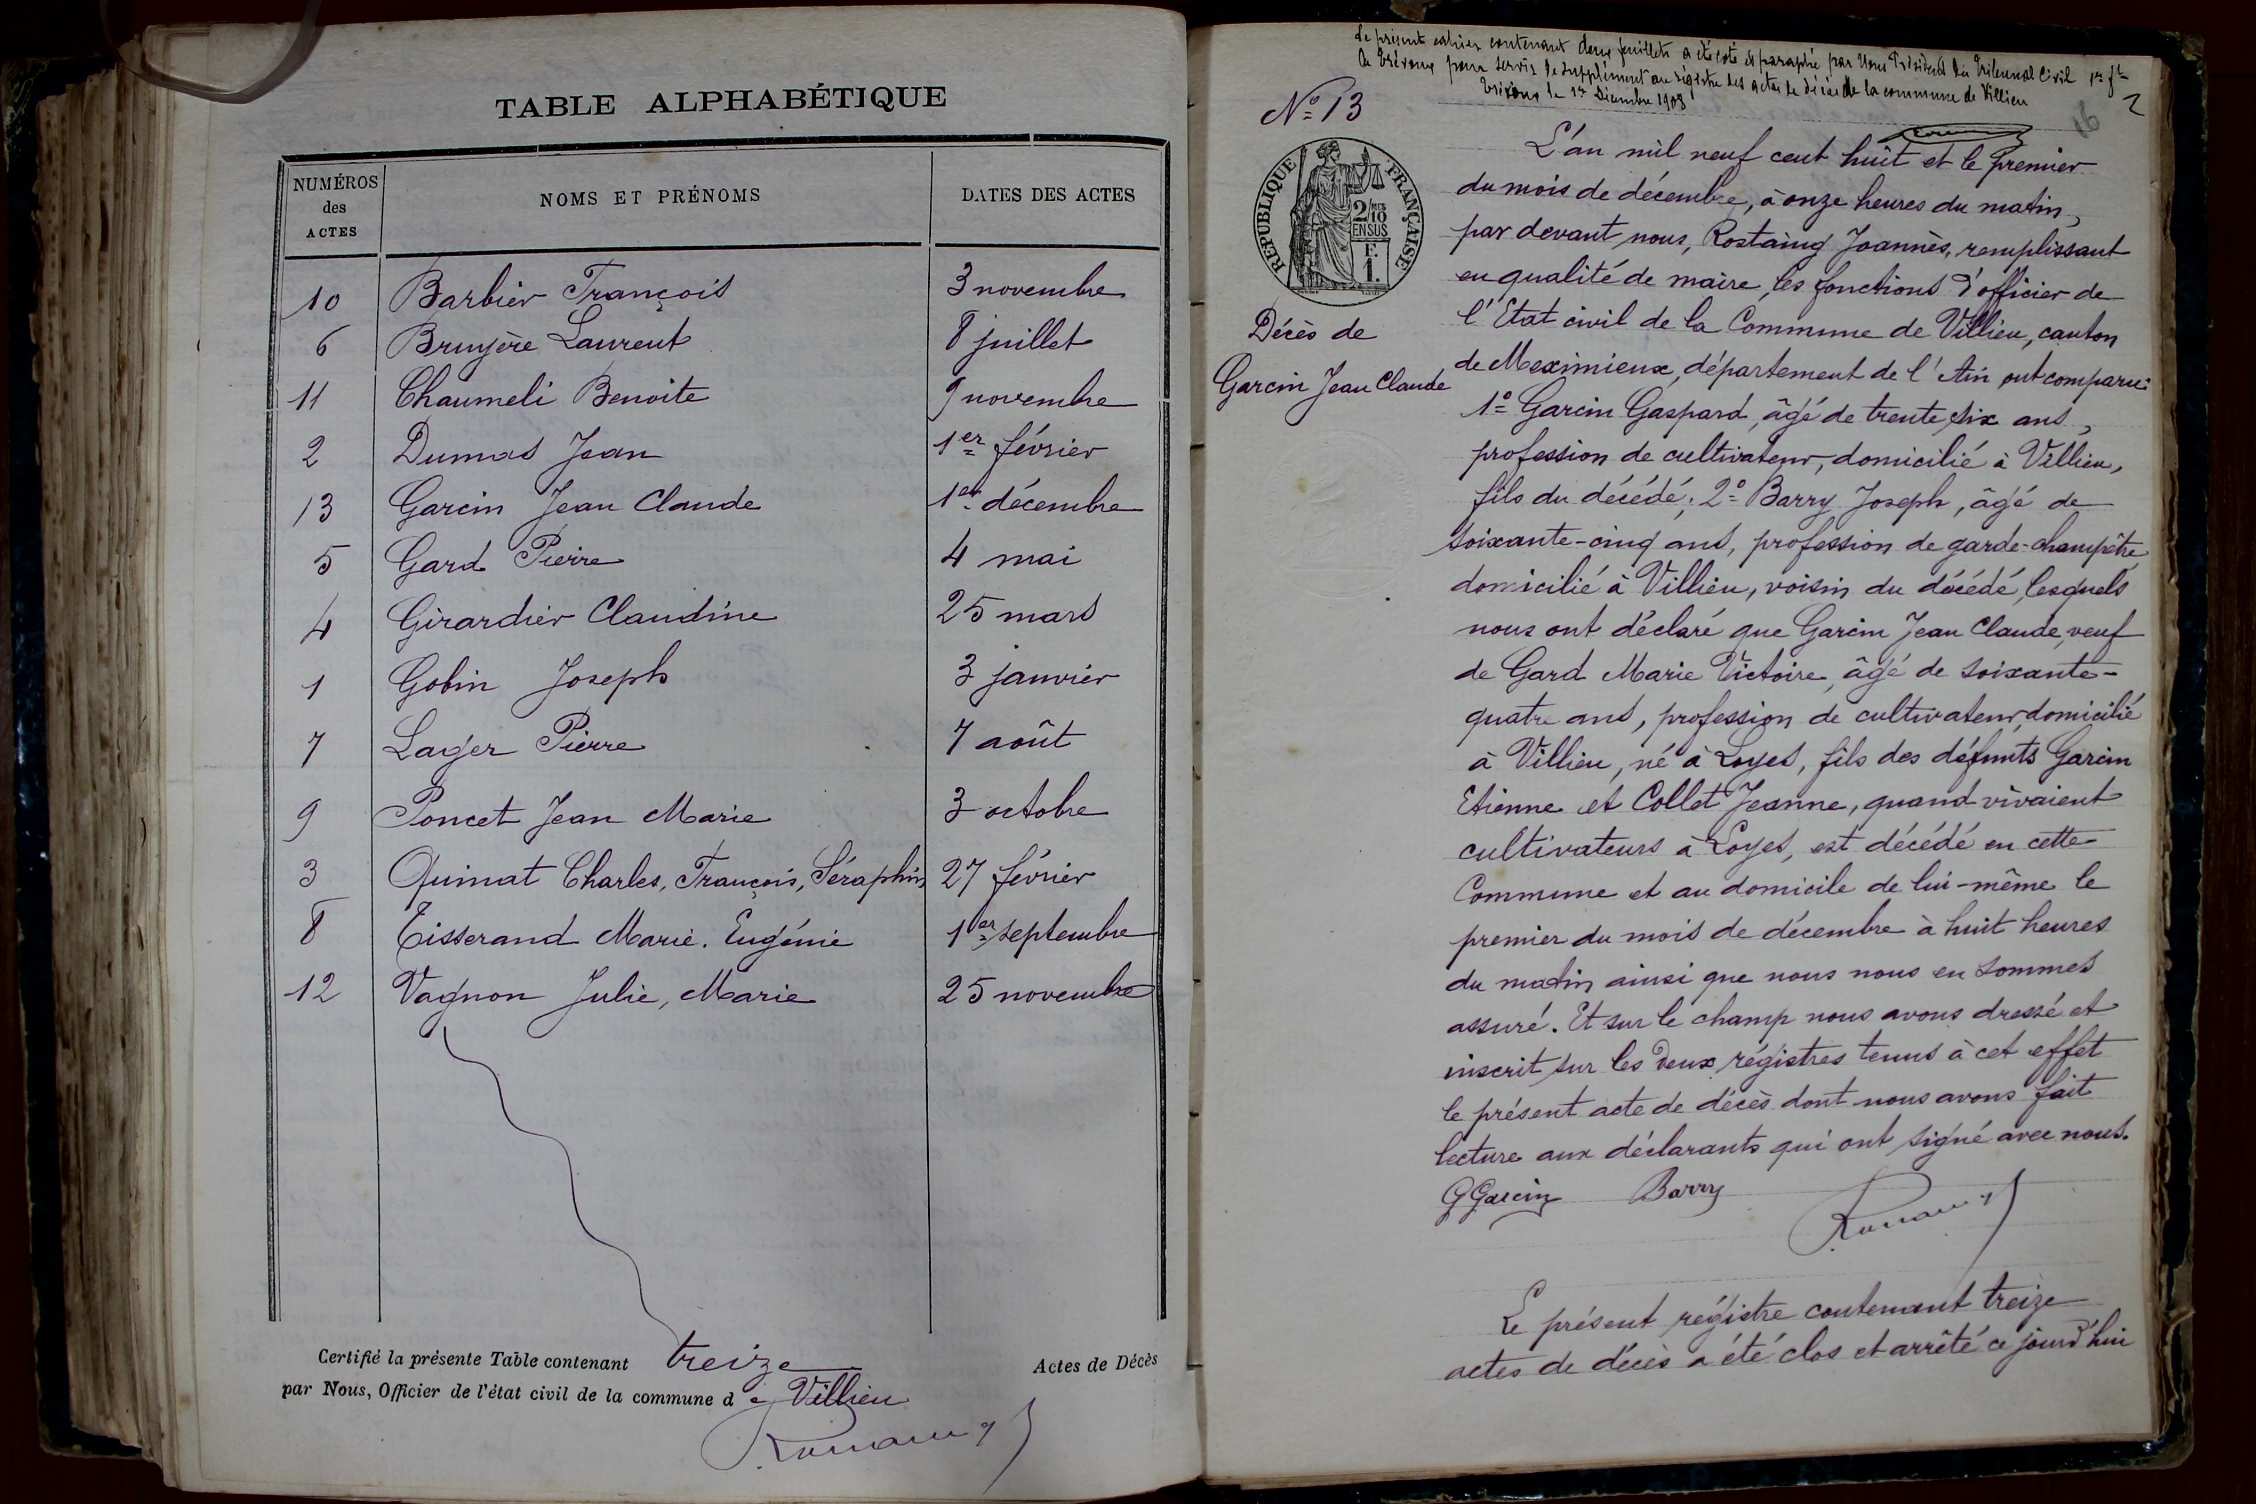 TABLE ALPHABÉTIQUE
NUMÉROS des ACTES NOMS ET PRÉNOMS DATES DES ACTES
10 Barbier François 3 novembre
6 Bruyère Laurent 8 juillet
11 Chaumeli Benoite 9 novembre
2 Dumas Jean 1er février
13 Garcin Jean Claude 1er décembre
5 Gard Pierre 4 mai
4 Girardier Claudine 25 mars
1 Gobin Joseph 3 janvier
7 Lager Pierre 7 août
9 Poncet Jean Marie 3 octobre
3 Quimat Charles, François, Séraphin 27 février
8 Tisserand Marie. Eugénie 1er septembre
12 Vagnon Julie, Marie 25 novembre
Certifié la présente Table contenant treize Actes de Décès
par Nous, Officier de l'état civil de la commune de Villieu
Le présent cahier contenant deux feuillets a été coté et paraphé par Nous Président du Tribunal Civil 1er ft
de Trévoux pour servir de supplément au registre des actes de décès de la commune de Villieu
Trévoux le 1er Décembre 1908
2
16
No 13
RÉPUBLIQUE FRANÇAISE
2/10
EN SUS
F.
1.
Décès de
Garcin Jean Claude
L'an mil neuf cent huit et le premier
du mois de décembre, à onze heures du matin,
par devant nous, Rostaing Joannès, remplissant
en qualité de maire, les fonctions d'officier de
l'Etat civil de la Commune de Villieu, canton
de Meximieux, département de l'Ain ont comparu:
1o Garcin Gaspard, âgé de trente six ans,
profession de cultivateur, domicilié à Villieu,
fils du décédé; 2o Barry Joseph, âgé de
soixante-cinq ans, profession de garde-champêtre
domicilié à Villieu, voisin du décédé, lesquels
nous ont déclaré que Garcin Jean Claude, veuf
de Gard Marie Victoire, âgé de soixante-
quatre ans, profession de cultivateur, domicilié
à Villieu, né à Loyes, fils des défunts Garcin
Etienne et Collet Jeanne, quand vivaient
cultivateurs à Loyes, est décédé en cette
Commune et au domicile de lui-même le
premier du mois de décembre à huit heures
du matin ainsi que nous nous en sommes
assuré. Et sur le champ nous avons dressé et
inscrit sur les deux régistres tenus à cet effet
le présent acte de décès dont nous avons fait
lecture aux déclarants qui ont signé avec nous.
G Garcin Barry
Le présent régistre contenant treize
actes de décès a été clos et arrêté ce jourd'hui